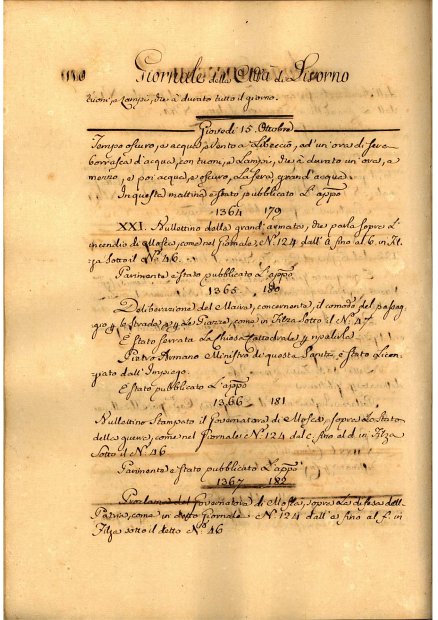 Giornale della Città di Livorno
tuoni, e Lampi, che à durato tutto il giorno.
Giovedì 15. Ottobre
Tempo oscuro, e acqua, e Vento a Libeccio, ad un' ora di sera
borrasca d'acqua, con tuoni, e Lampi, che à durato un' ora, a
meno, e poi acqua, e oscuro, e La sera grand' acqua.
In questa mattina è stato pubblicato L'appo
1364 179
XXI. Bullettino della grand' armata, che parla sopra L'
incendio di Mosca, come nel Giornale, No. 124 dall' a fino al b. in Fil-
za Sotto il No. 46.
Parimente è stato pubblicato L'appo
1365 180
Deliberazione del Maire, concernente, il comodo del passag-
gio p. le strade, e p. le Piazze, come in Filza Sotto il No. 47.
È stato serrata La Chiesa Cattedrale p
Pietro Ministro di questa Sanità è stato Licen-
ziato dall' Impiego.
È stato pubblicato L'appo
1366 181
Bullettino Stampato il Governatore di Mosca, sopra Lo Stato
della guerra, come nel Giornale No. 124 dal c. fino al d. in Filza
Sotto il No. 46
Parimente è stato pubblicato L'appo
1367 182
Proclama del Governatore di Mosca, sopra La difesa della
Patria, come in detto Giornale No. 124 dall' e fino al f. in
Filza sotto il detto No. 46